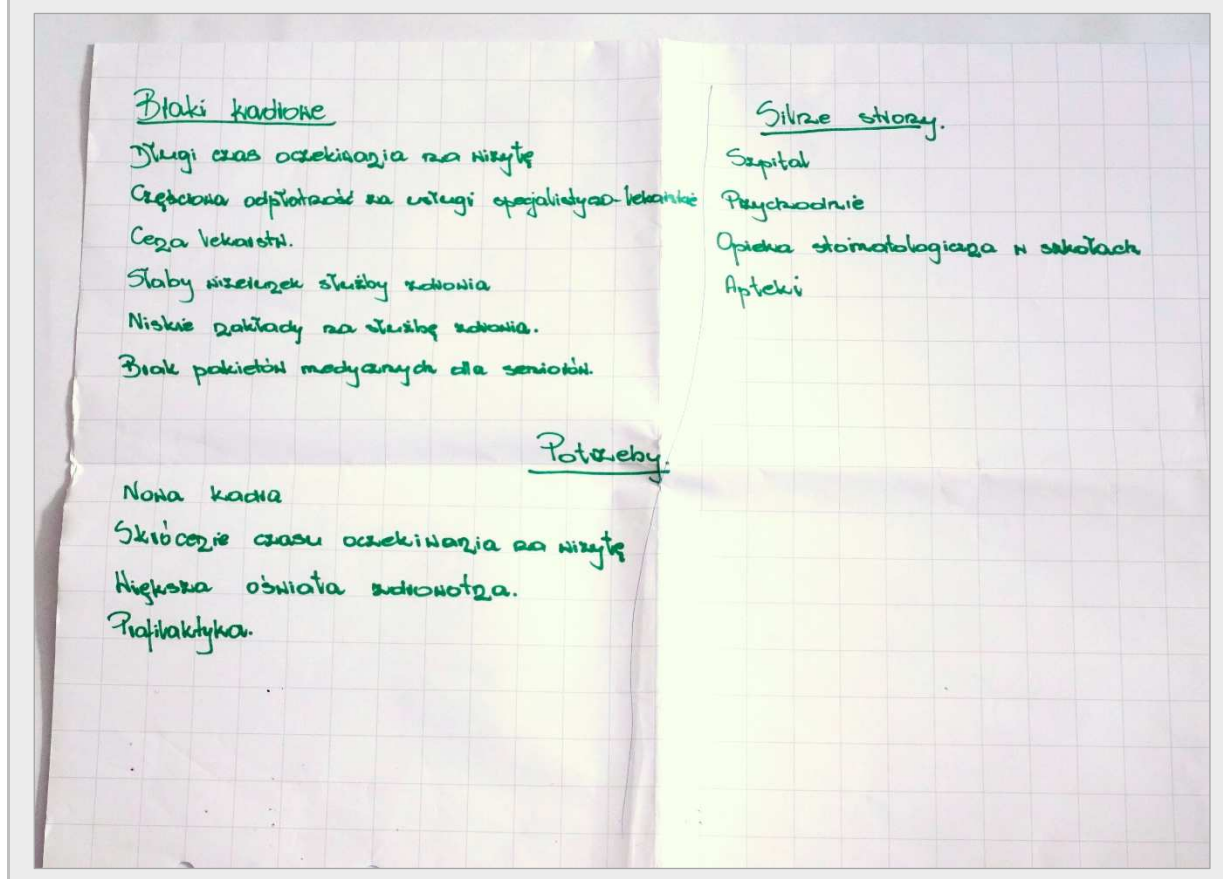 Braki kadrowe
Długi czas oczekiwania na wizytę
Częściowa odpłatność za usługi specjalistyczno-lekarskie
Cena lekarstw.
Słaby wizerunek służby zdrowia
Niskie nakłady na służbę zdrowia.
Brak pakietów medycznych dla seniorów.
Silne strony.
Szpital
Przychodnie
Opieka stomatologiczna w szkołach
Apteki
Potrzeby.
Nowa kadra
Skrócenie czasu oczekiwania na wizytę
Większa oświata zdrowotna.
Profilaktyka.